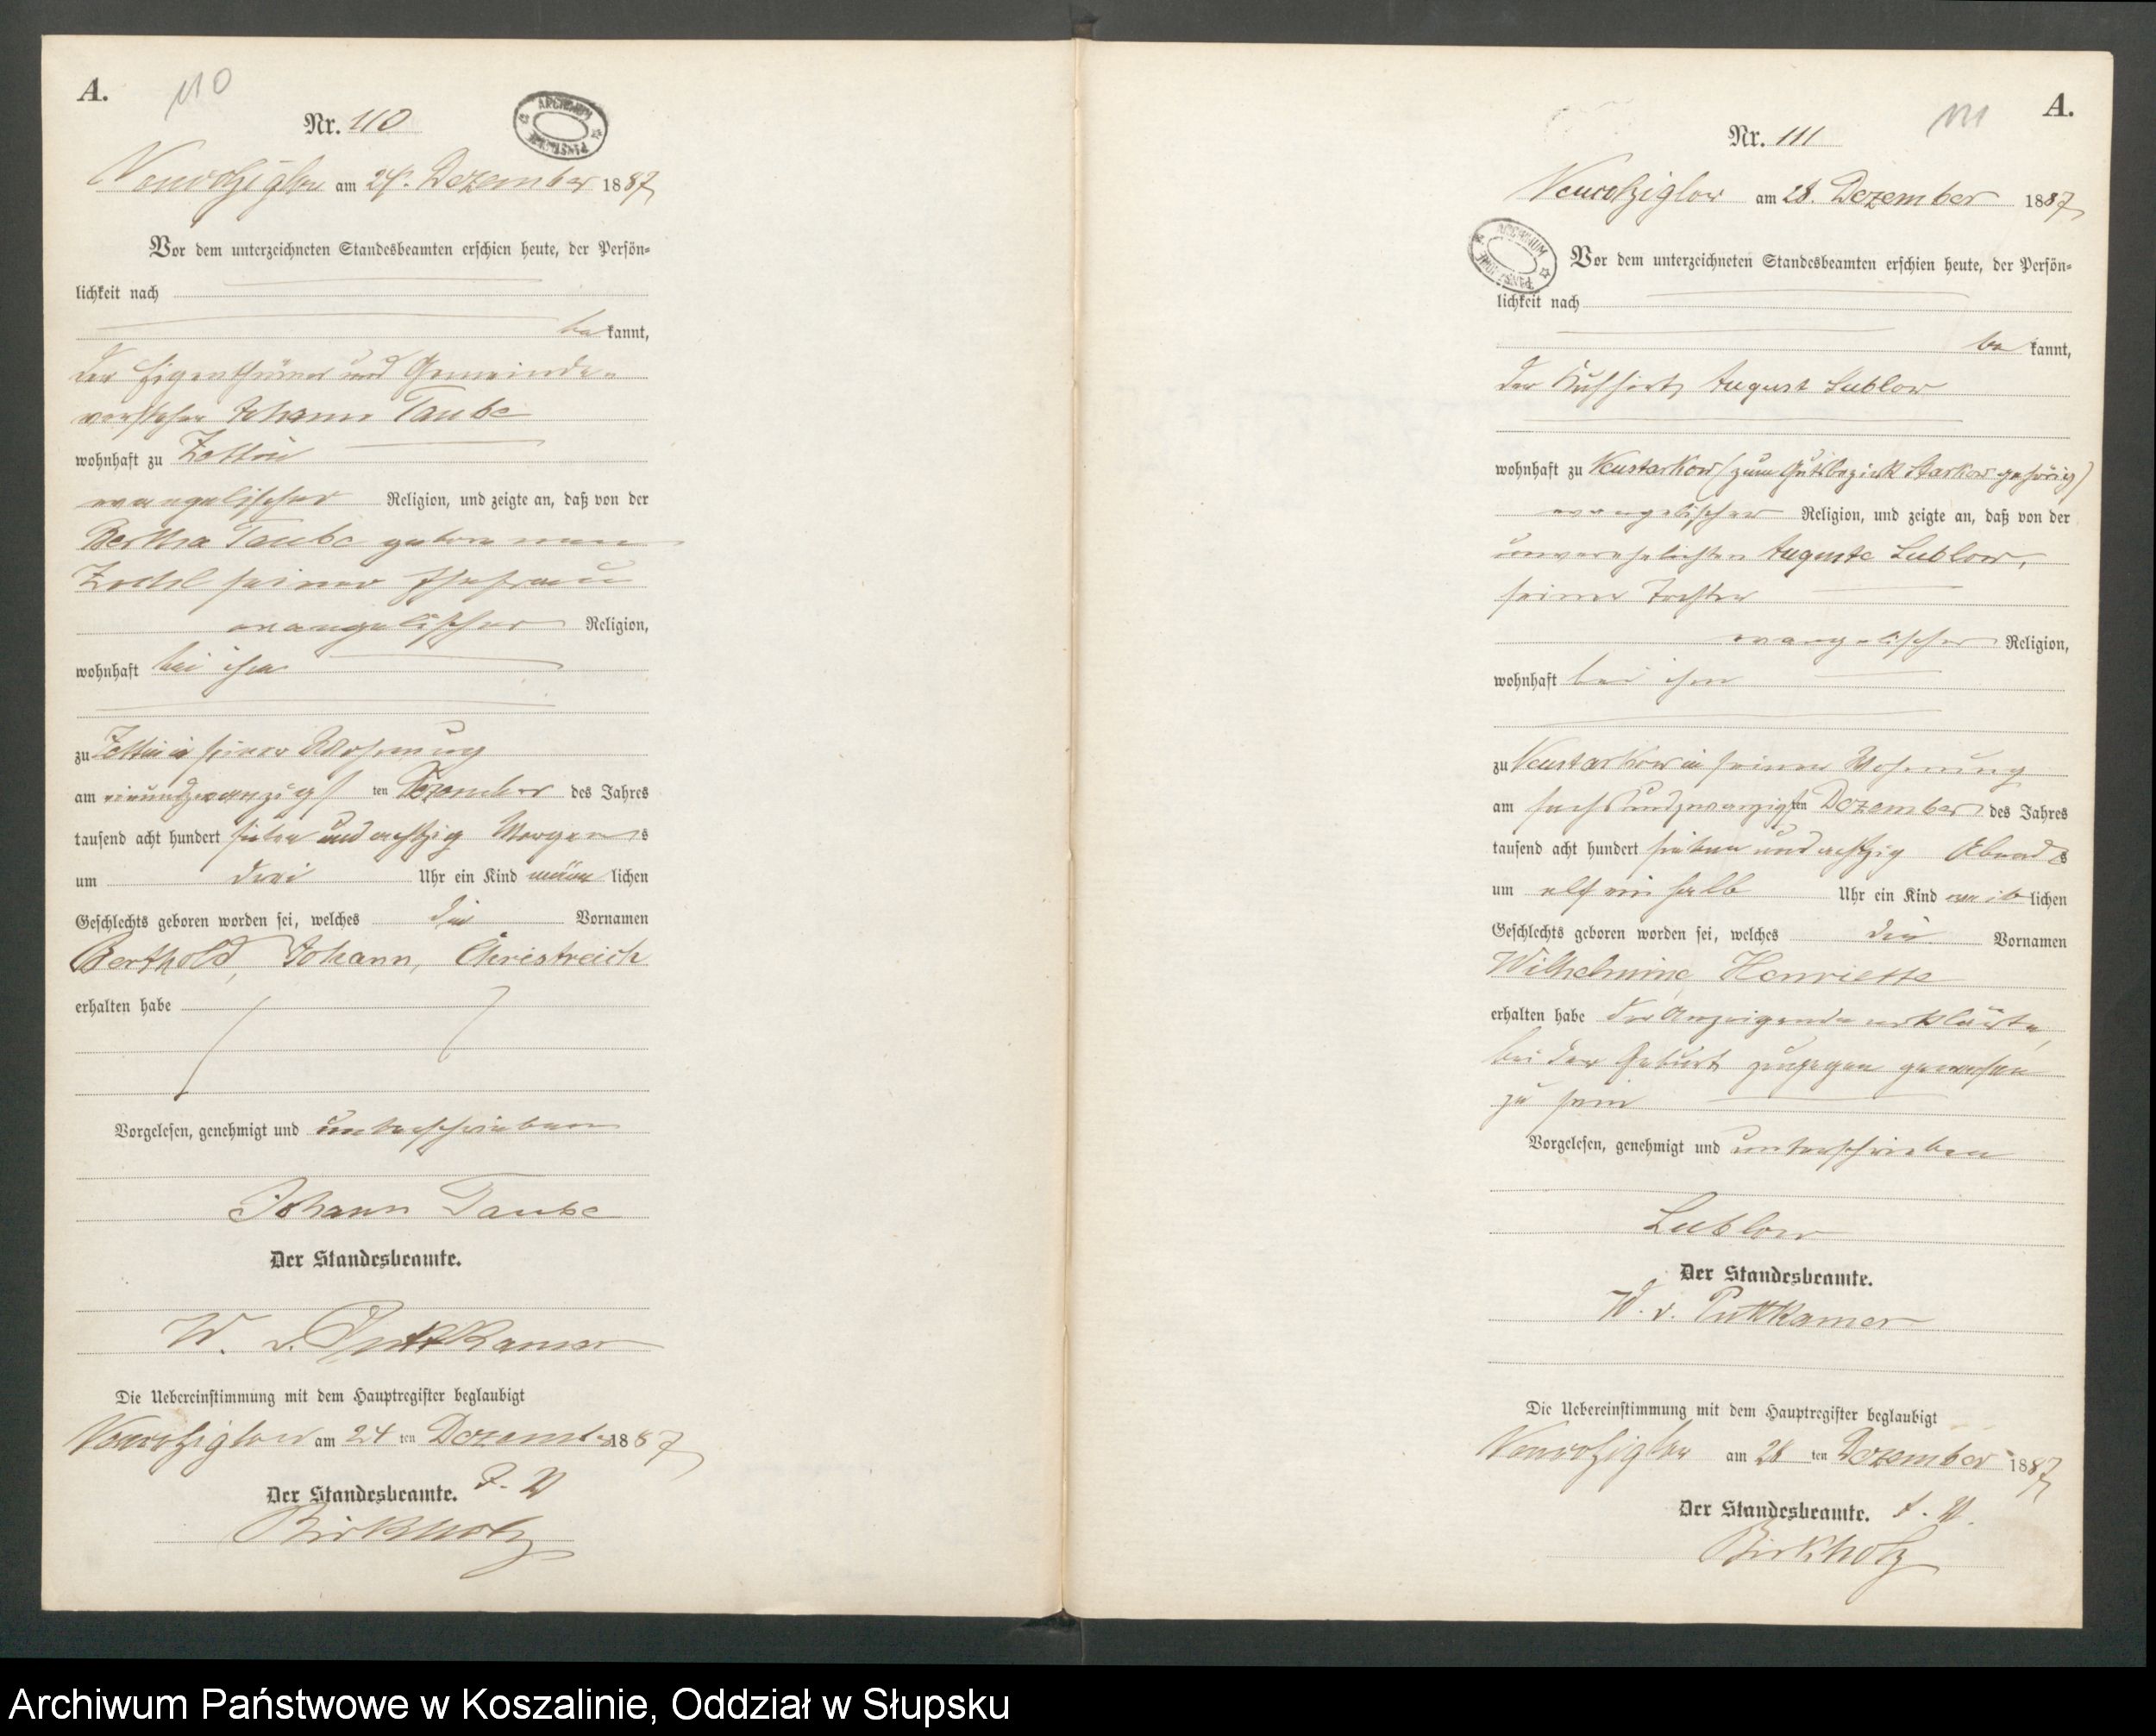 A.
110
Nr. 110
Neuwolziglow am 24. Dezember 1887
Vor dem unterzeichneten Standesbeamten erschien heute, der Persön-
lichkeit nach
bekannt,
der Eigenthümer und Gemeinde-
vorsteher Johann Taube
wohnhaft zu Zettin
evangelischer Religion, und zeigte an, daß von der
Bertha Taube geborenen
seiner Ehefrau
evangelischer Religion,
wohnhaft bei ihm
zu Zettin in seiner Wohnung
am einundzwanzigsten Dezember des Jahres
tausend acht hundert sieben und achtzig Morgens
um drei Uhr ein Kind männlichen
Geschlechts geboren worden sei, welches die Vornamen
Berthold, Johann, Christreich
erhalten habe
Vorgelesen, genehmigt und unterschrieben
Johann Taube
Der Standesbeamte.
W. v. Puttkamer
Die Uebereinstimmung mit dem Hauptregister beglaubigt
Neuwolziglow am 24 ten Dezember 1887
Der Standesbeamte. J. V
Birkholz
A.
111
Nr. 111
Neuwolziglow am 28. Dezember 1887
Vor dem unterzeichneten Standesbeamten erschien heute, der Persön-
lichkeit nach
bekannt,
der Kuhhirt August Lublow
wohnhaft zu Neustarkow (zum Gutsbezirk Starkow gehörig)
evangelischer Religion, und zeigte an, daß von der
unverehelichten Auguste Lublow,
seiner Tochter
evangelischer Religion,
wohnhaft bei ihm
zu Neustarkow in seiner Wohnung
am sechsundzwanzigsten Dezember des Jahres
tausend acht hundert sieben und achtzig Abends
um elf ein halb Uhr ein Kind weiblichen
Geschlechts geboren worden sei, welches die Vornamen
Wilhelmine Henriette
erhalten habe der Anzeigende erklärte,
bei der Geburt zugegen gewesen
zu sein
Vorgelesen, genehmigt und unterschrieben
Lublow
Der Standesbeamte.
W. v. Puttkamer
Die Uebereinstimmung mit dem Hauptregister beglaubigt
Neuwolziglow am 28 ten Dezember 1887
Der Standesbeamte. J. V.
Birkholz
Archiwum Państwowe w Koszalinie, Oddział w Słupsku